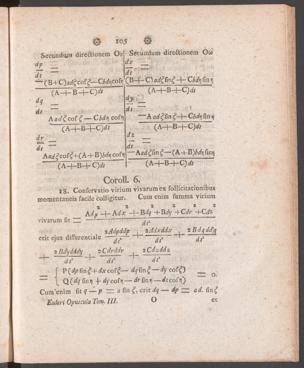 105
Secundum directionem Ou | Secundum directionem Oω
dp/dt = | dx/dt =
(B+C)adζcosζ−Cbdηcosη/(A+B+C)dt | −(B+C)adζsinζ+Cbdηsinη/(A+B+C)dt
dq/dt = | dy/dt =
Aadζcosζ−Cbdηcosη/(A+B+C)dt | −Aadζsinζ+Cbdηsinη/(A+B+C)dt
dr/dt = | dz/dt =
Aadζcosζ+(A+B)bdηcosη/(A+B+C)dt | −Aadζsinζ−(A+B)bdηsinη/(A+B+C)dt
Coroll. 6.
18. Conservatio virium vivarum ex sollicitationibus
momentaneis facile colligitur. Cum enim summa virium
vivarum sit = Adp²+Adx²+Bdq²+Bdy²+Cdr²+Cdz²/dt²
erit ejus differentiale 2Adpddp/dt² + 2Adxddx/dt² + 2Bdqddq/dt²
+ 2Bdyddy/dt² + 2Cdrddr/dt² + 2Cdzddz/dt²
= { P(dp sin ζ + dx cos ζ − dq sin ζ − dy cos ζ)
Q(dq sin η + dy cos η − dr sin η − dz cos η) } = 0.
Cum enim sit q − p = a sin ζ, erit dq − dp = adζ
Euleri Opuscula Tom. III. O et